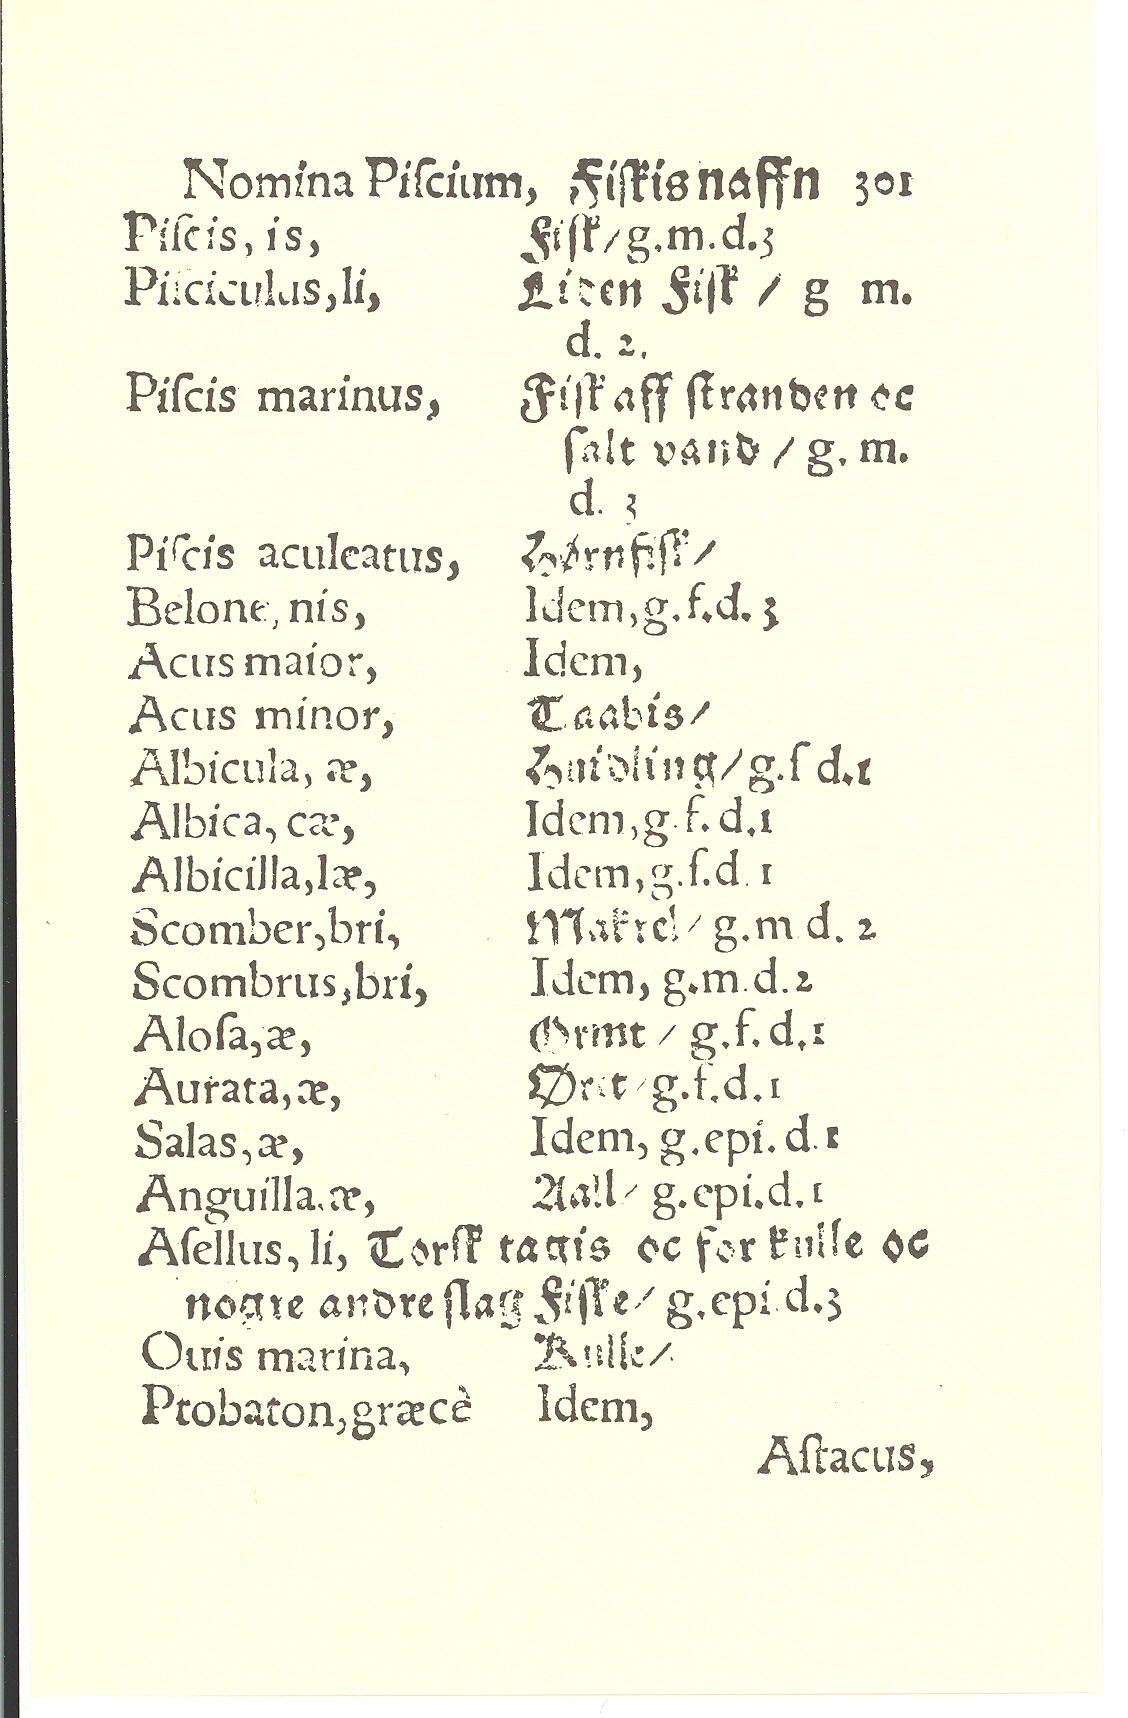 Nomina Piſcium, Fiſkis naffn 301
Piſcis, is, Fiſk / g.m.d.3
Piſciculus, li, Liden Fiſk / g m.
d. 2.
Piſcis marinus, Fiſk aff ſtranden oc
ſalt vand / g. m.
d. 3
Piſcis aculeatus, Hørnfiſk /
Belone, nis, Idem, g.f.d. 3
Acus maior, Idem,
Acus minor, Taabis /
Albicula, æ, Huidling / g.f d.1
Albica, cæ, Idem, g.f.d.1
Albicilla, læ, Idem, g.f.d. 1
Scomber, bri, Makrel / g.m d. 2
Scombrus, bri, Idem, g.m.d.2
Aloſa, æ, Ørnt / g.f.d.1
Aurata, æ, Ørit / g.f.d.1
Salas, æ, Idem, g.epi.d.1
Anguilla. æ, Aall / g.epi.d.1
Aſellus, li, Torſk tagis oc for kulle oc
nogre andre ſlag Fiſke / g.epi.d.3
Ouis marina, Kulle /
Probaton, græcè Idem,
Aſtacus,